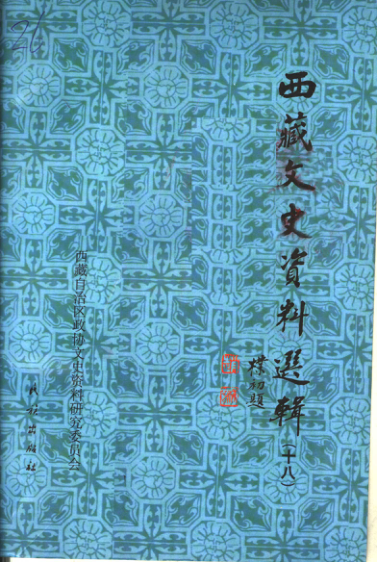 西藏文史資料選輯（十八）
樸初題
西藏自治区政协文史资料研究委员会
民族出版社